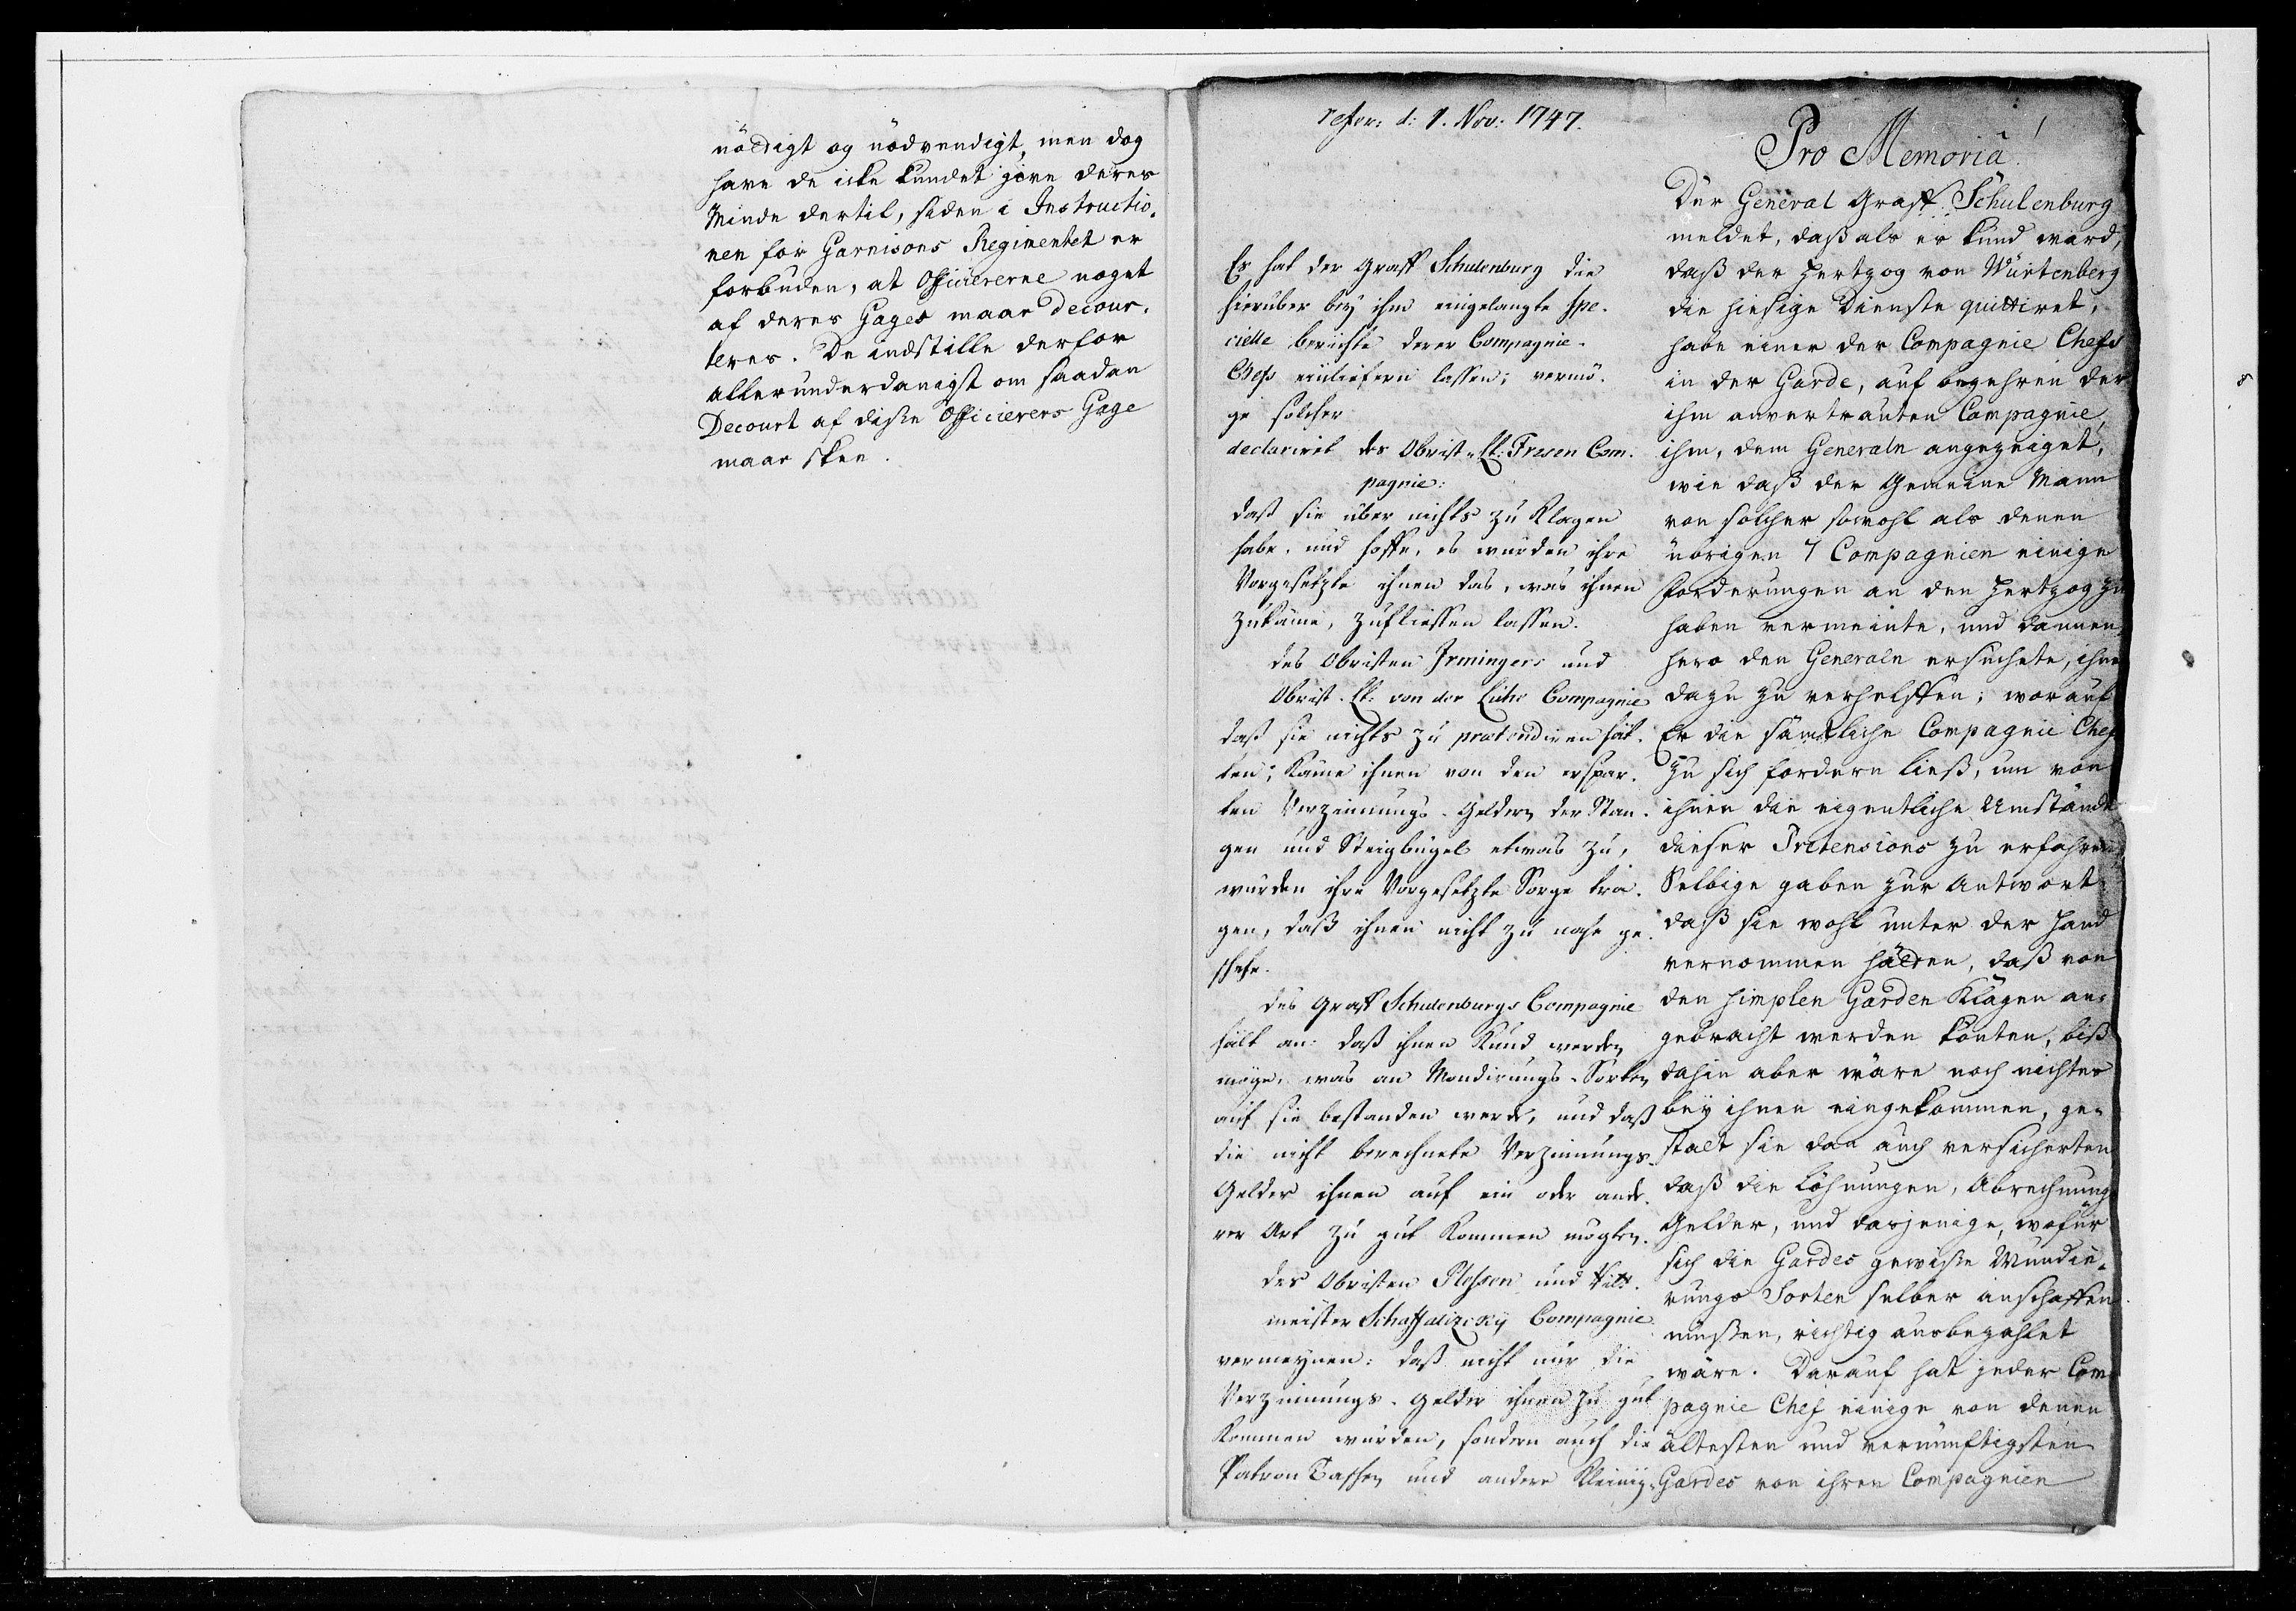 nödigt og nödvendigt, men dog
have de icke kundet give deres
Minde dertil, siden i Instructio-
nen for Garnisons Regimentet er
forbuden, at Officiererne noget
af deres Gages maae decour-
teres. De indstille derfor
allerunderdanigst om saadan
Decourt af disse Officierers Gage
maae skee.
refer: d: 1. Nov: 1747.
Es hat der Graff Schulenburg die
hierüber bey ihm eingelangte spe-
cielle berichte derer Compagnie-
Chefs einliefern lassen; vermö-
ge solcher
declariret des Obrist-Lt: Fresen Com-
pagnie:
daß sie über nichts zu klagen
habe, und hoffe, es würden ihre
Vorgesetzte ihnen das, was ihnen
zukäme, zufliessen lassen.
des Obristen Irmingers und
Obrist-Lt: von der Lühe Compagnie
daß sie nichts zu prætendiren hät-
ten; käme ihnen von den erspar-
ten Verzinnungs-Geldern der Stan-
gen und Steigbügel etwas zu,
würden ihre Vorgesetzte Sorge tra-
gen, daß ihnen nicht zu nahe ge-
schehe.
des Graff Schulenburgs Compagnie
hält an: daß ihnen kund werden
möge, was an Mondirungs-Sorten
auf sie bestanden werde, und daß
die nicht berechnete Verzinnungs-
Gelder ihnen auf ein oder ande-
rer Art zu gut kommen mögten.
des Obristen Plessen und Ritt-
meister Schaffalizcky Compagnie
vermeynen: daß nicht nur die
Verzinnungs-Gelder ihnen zu gut
kommen würden, sondern auch die
Patron Taschen und andere Kleinig-
Pro Memoriâ!
Der General Graff Schulenburg
meldet, daß als es kund ward,
daß der Hertzog von Würtenberg
die hiesige Dienste quittiret,
habe einer der Compagnie Chefs
in der Garde, auf begehren der
ihm anvertrauten Compagnie,
ihm, dem Generaln angezeiget,
wie daß der Gemeine Mann
von solcher sowohl als denen
übrigen 7 Compagnien einige
Forderungen an den Hertzog zu
haben vermeinte, und dannen-
hero den Generaln ersuchete, ihnen
dazu zu verhelffen; worauf
Er die sämtliche Compagnie Chefs
zu sich fordern ließ, um von
ihnen die eigentliche Umstände
dieser Pretensions zu erfahren,
Selbige gaben zur Antwort
daß sie wohl unter der Hand
vernommen hätten, daß von
den simplen Garden Klagen an-
gebracht werden könten, biß
dahin aber wäre noch nichtes
bey ihnen eingekommen, ge-
stalt sie dan auch versicherten
daß die Löhnungen, Abrechnungs
Gelder, und dasjenige, wofür
sich die Gardes gewisse Mundie-
rungs Sorten selber anschaffen
müssen, richtig ausbezahlet
wäre. Darauf hat jeder Com-
pagnie Chef einige von denen
ältesten und vernünftigsten
Gardes von ihren Compagnien